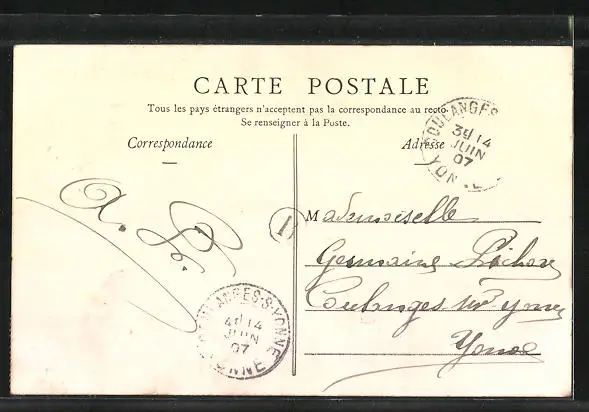 CARTE POSTALE
Tous les pays étrangers n'acceptent pas la correspondance au recto.
Se renseigner à la Poste.
Correspondance
Adresse
COULANGES
3e 14
JUIN
07
YONNE
1
Mademoiselle
Germaine
Coulanges sur Yonne
Yonne
COULANGES-S-YONNE
4e 14
JUIN
07
YONNE